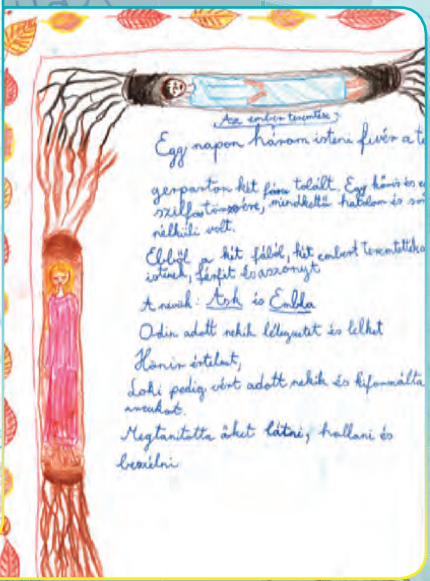 Az ember teremtése
Egy napon három isteni fivér a te
gerparton két fára talált. Egy kőris és e
szilfatönkre, mindkettő hatalom és so
nélküli volt.
Ebből a két fából, két embert teremtettek
istenek, férfit és asszonyt
A nevük: Ask és Embla
Odin adott nekik lélegzetet és lelket
Hönir értelmet,
Loki pedig vért adott nekik és kiformálta
arcukat.
Megtanította őket látni, hallani és
beszélni